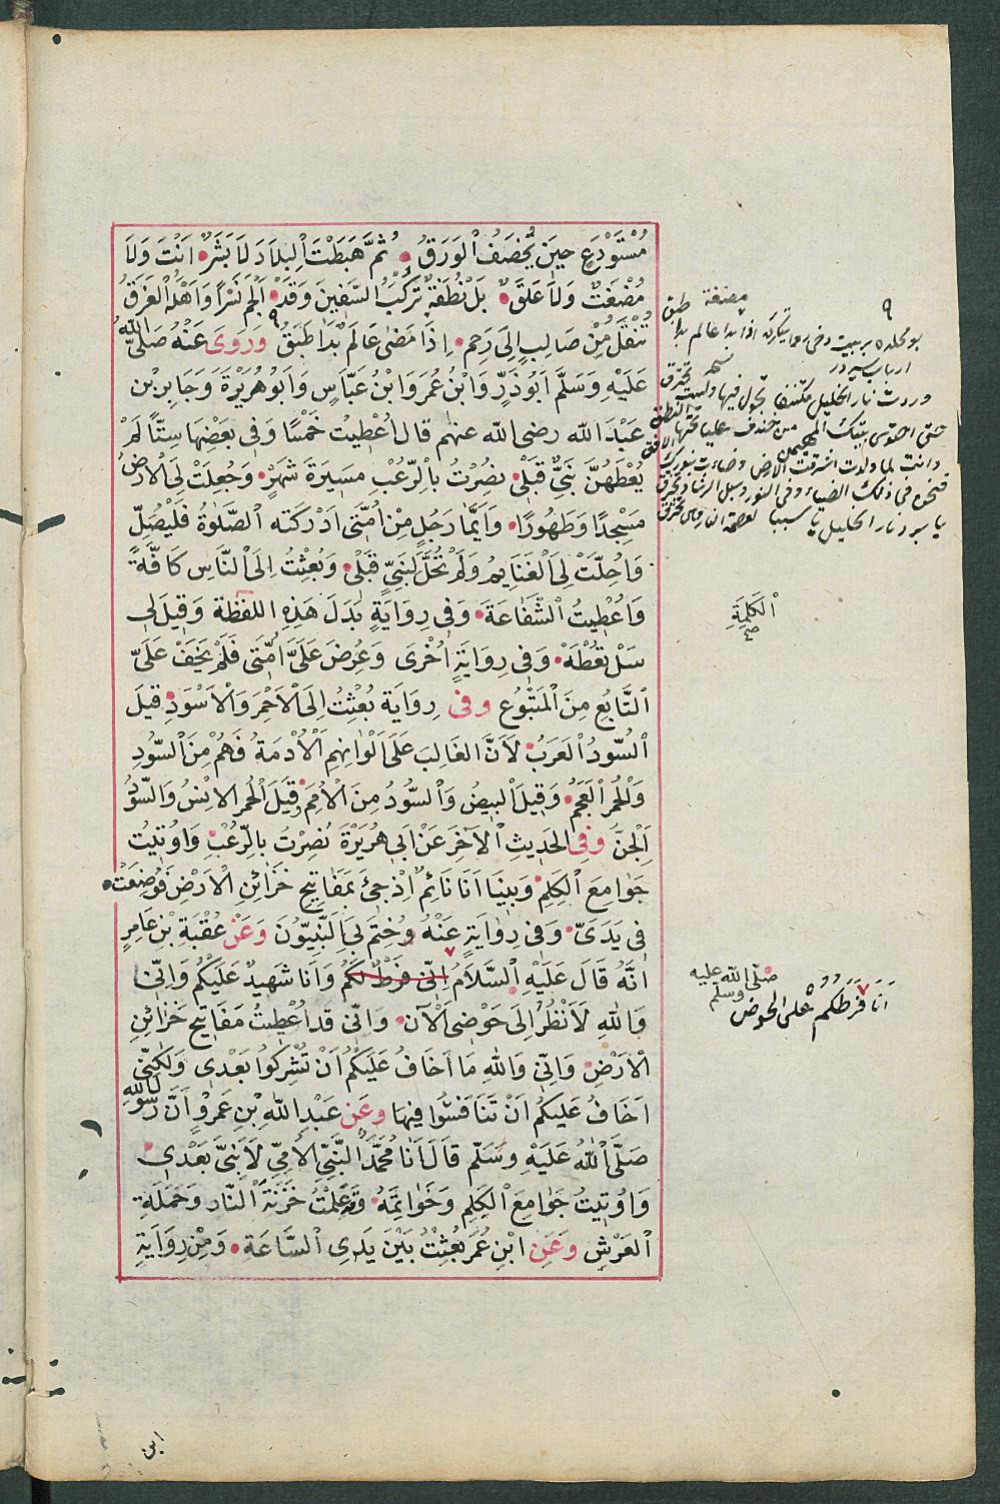 مُسْتَوْدَعٍ حِينَ يُخْصَفُ الْوَرَقُ ثُمَّ هَبَطْتَ الْبِلَادَ لَا بَشَرٌ اَنْتَ وَلَا
مُضْغَةٌ وَلَا عَلَقٌ بَلْ نُطْفَةٌ تَرْكَبُ السَّفِينَ وَقَدْ اَلْجَمَ نَسْرًا وَاَهْلَهُ الْغَرَقُ
تُنْقَلُ مِنْ صَالِبٍ اِلَى رَحِمٍ اِذَا مَضٰى عَالَمٌ بَدَا طَبَقُ وَرَوَى عَنْهُ صَلَّى اللّٰه
عَلَيْهِ وَسَلَّمَ اَبُو ذَرٍّ وَابْنُ عُمَرَ وَابْنُ عَبَّاسٍ وَاَبُو هُرَيْرَةَ وَجَابِرُ بْن
عَبْدِ الله رضى الله عنهم قال اُعْطِيتُ خَمْسًا وَفِى بَعْضِهَا سِتًّا لَمْ
يُعْطَهُنَّ نَبِىٌّ قَبْلِى نُصِرْتُ بِالرُّعْبِ مَسِيرَةَ شَهْرٍ وَجُعِلَتْ لِىَ الْاَرْضُ
مَسْجِدًا وَطَهُورًا وَاَيُّمَا رَجُلٍ مِنْ اُمَّتِى اَدْرَكَتْه الصَّلٰوةُ فَلْيُصَلِّ
وَاُحِلَّتْ لِىَ الْغَنَايِمُ وَلَمْ تُحَلَّ لِنَبِىٍّ قَبْلِى وَبُعِثْتُ اِلَى النَّاسِ كَافَّةً
وَاُعْطِيتُ الشَّفَاعَةَ وَفِى رِوَايَةٍ بَدَلَ هَذِهِ اللفْظَة وَقِيلَ لِى
سَلْ تُعْطَهْ وَفِى رِوَايَةٍ اُخْرَى وَعُرِضَ عَلَىَّ اُمَّتِى فَلَمْ يَخْفَ عَلَىَّ
التَّابِعُ مِنَ الْمَتْبُوعِ وفى رِوَايَة بُعِثْتُ اِلَى الْاَحْمَرِ وَالْاَسْوَدِ قِيلَ
السُّودُ الْعَرَبُ لِاَنَّ الغَالِبَ عَلَى اَلْوَانِهِمِ الْاُدْمَةُ فَهُمْ مِنَ السُّودِ
وَالْحُمْرُ الْعَجَمُ وَقِيلَ الْبِيضُ وَالسُّودُ مِنَ الْاُمَمِ وَقِيلَ الْحُمْرُ الاِنْسُ وَالسُّودُ
اَلْجِنُّ وَفِى الْحَدِيثِ الْآخَرِ عَنْ اَبِى هُرَيْرَةَ نُصِرْتُ بِالرُّعْبِ وَاُوتِيتُ
جَوَامِعَ الْكَلِمِ وَبَيْنَا اَنَا نَائِمٌ اِذْ جِىءَ بِمَفَاتِيحِ خَزَائِنِ الْاَرْضِ فَوُضِعَتْ
فِى يَدَىَّ وَفِى رِوَايَةٍ عَنْهُ وَخُتِمَ بِىَ النَّبِيُّونَ وَعَنْ عُقْبَةَ بْنِ عَامِرٍ
انَّهُ قَالَ عَلَيْهِ السَّلَامُ اِنِّى فَرَطٌ لَكُمْ وَاَنَا شَهِيدٌ عَلَيْكُمْ وَاِنِّى
وَاللهِ لَاَنْظُرُ اِلَى حَوْضِى الْآنَ وَاِنِّى قَدْ اُعْطِيتُ مَفَاتِيحَ خَزَائِنِ
الْاَرْضِ وَاِنِّى وَاللهِ مَا اَخَافُ عَلَيْكُمْ اَنْ تُشْرِكُوا بَعْدِى وَلٰكِنِّى
اَخَافُ عَلَيْكُمْ اَنْ تَنَافَسُوا فِيهَا وعَن عَبْدِ اللّٰهِ بْنِ عَمْرٍو اَنَّ رَسُولَ اللهِ
صَلَّى اللّٰهُ عَلَيْهِ وَسَلَّم قَالَ اَنَا مُحَمَّدٌ النَّبِىُّ الْاُمِّىُّ لَا نَبِىَّ بَعْدِى
وَاُوتِيتُ جَوَامِعَ الْكَلِمِ وَخَوَاتِمَهُ وَعُلِّمْتُ خَزَنَةَ النَّارِ وَحَمَلَةَ
الْعَرْشِ وَعَنِ ابْنِ عُمَرَ بُعِثْتُ بَيْنَ يَدَىِ السَّاعَةِ وَمِنْ رِوَايَةِ
ابن
٩
وردت نار الخليل مكتتما تجول فيها ولست تحترق
حتى احتوى بيتك المهيمن من خندف علياء تحتها النطق
وانت لما ولدت اشرقت الارض وضاءت بنورك الافق
فنحن فى ذلك الضياء وفى النور وسبل الرشاد نخترق
يا برد نار الخليل يا سببا لعصمة النار وهى تحترق
اَلْكَلِمَةِ
صح
اَنَا فَرَطُكُمْ على الحوض
صلّى الله عليه وسلّم